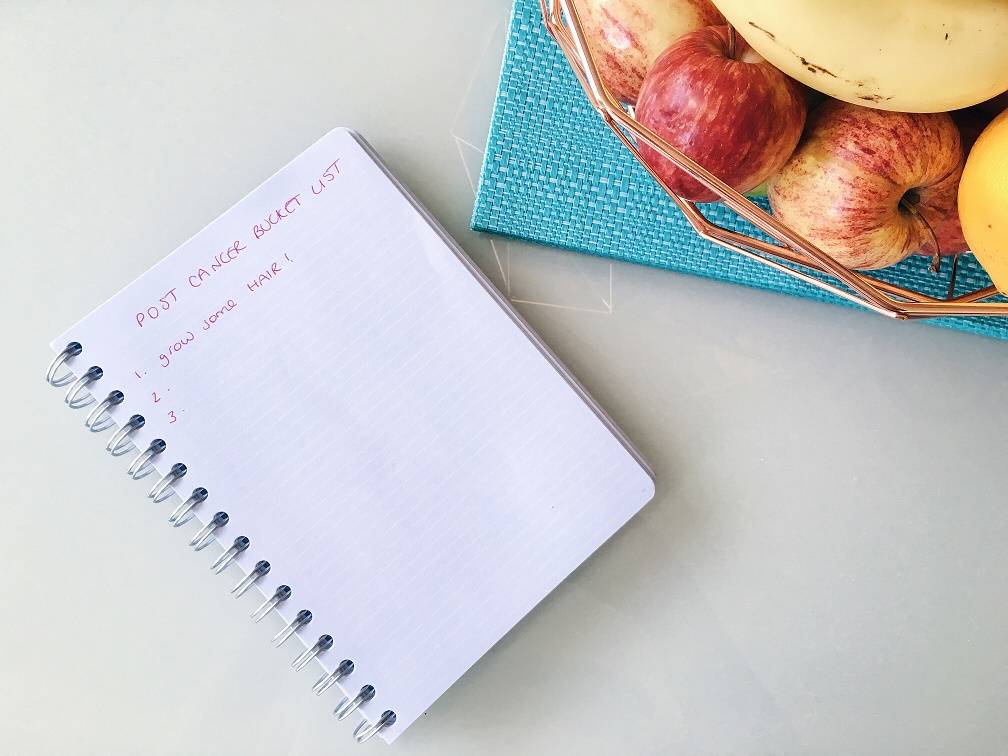 POST CANCER BUCKET LIST
1. grow some HAIR!
2.
3.